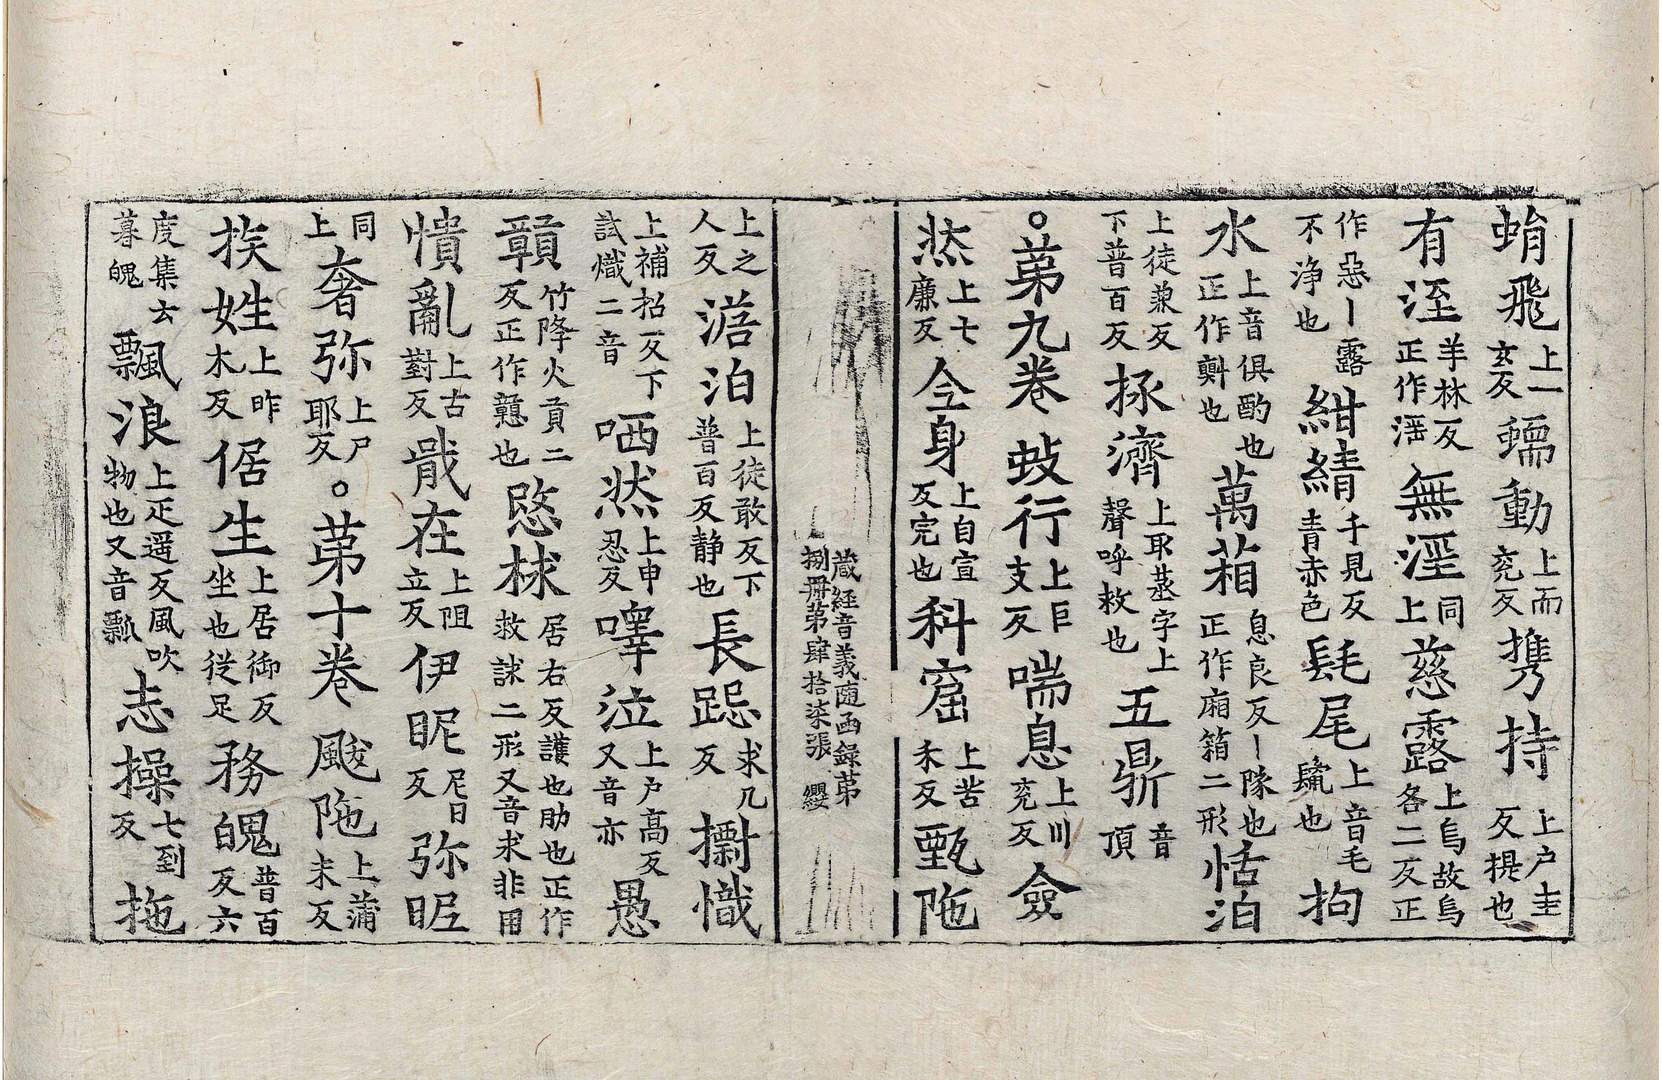 蜎飛上一玄反蝡動上而兖反携持上户圭反提也
有淫羊林反正作滛無淫同上慈露上烏故烏各二反正
作惡丨露不浄也紺績千見反青赤色髦尾上音毛䰅也拘
水上音俱酌也正作㪺也萬葙息良反丨隊也正作廂箱二形恬泊
上徒兼反下普百反拯濟上取蒸字上聲呼救也五鼎音頂
。苐九卷蚑行上巨支反喘息上川兖反僉
然上七廉反全身上自宣反完也科窟上苦禾反甄陁
蔵經音義随函録苐捌冊苐肆拾柒張 纓
上之人反澹泊上徒敢反下普百反静也長跽求几反㩌幟
上補招反下試熾二音哂然上申忍反嘷泣上户高反又音亦愚
贛竹降火貢二反正作戇也慜㧜居右反護也肋也正作救詸二形又音求非用
憒亂上古對反戢在上阻立反伊眤尼日反弥眤
同上奢弥上尸耶反。苐十卷颰陁上蒲末反
挨姓上昨木反倨生上居御反坐也從足務魄普百反六
度集云暮魄飄浪上疋遥反風吹物也又音瓢志操七到反拖